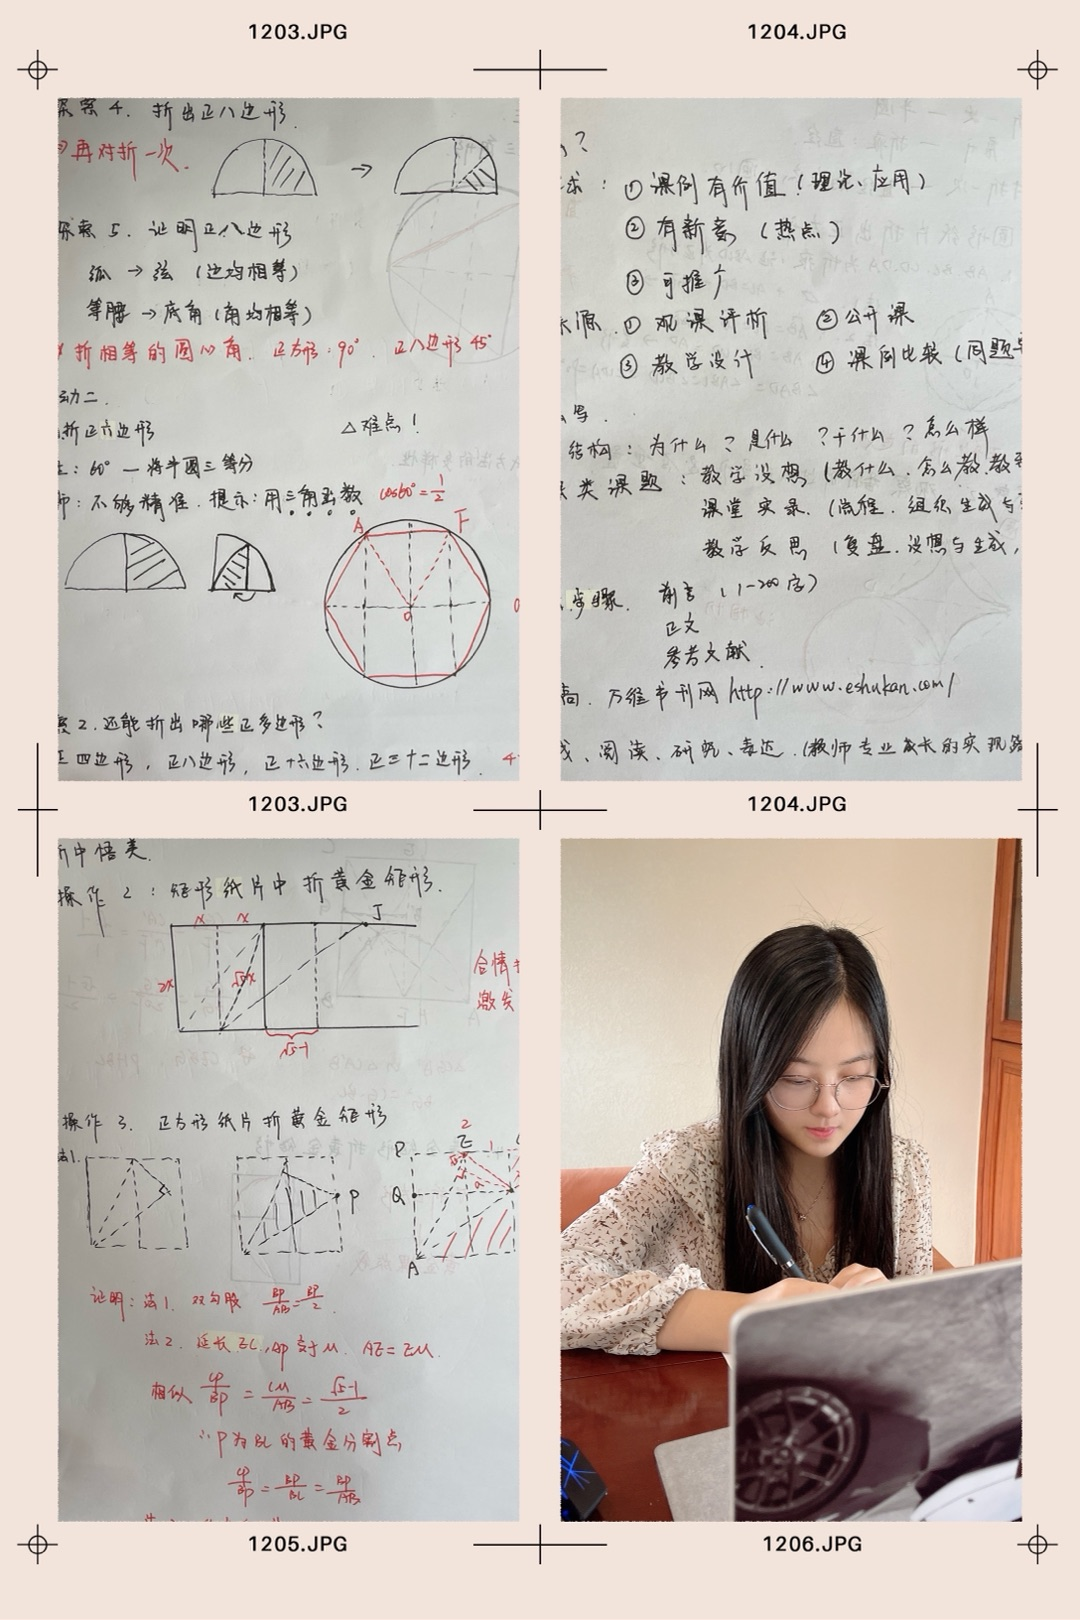 1203.JPG
1204.JPG
探索4. 折出正八边形.
再对折一次.
探索5. 证明正八边形
弧→弦（边均相等）
等腰→底角（角均相等）
折相等的圆心角. 正方形:90°. 正八边形45°
动二.
折正六边形
△难点！
生：60°—将半圆三等分
师：不够精准. 提示：用三角函数 cos60°=1/2
A F
O
2.还能折出哪些正多边形？
正四边形，正八边形，正十六边形.正三十二边形.
？
求：①课例有价值（理论、应用）
②有新意（热点）
③可推广
来源.①观课评析 ②公开课
③教学设计 ④课例比较（同题
写.
结构：为什么？是什么？干什么？怎么样
类课题：教学设想（教什么.怎么教.教
课堂实录.（流程.组织生成与
教学反思（复盘.设想与生成，
步骤. 前言（1-200字）
正文
参考文献.
高.万维书刊网http://www.eshukan.com/
、阅读、研究、表达.（教师专业成长的实现路
1203.JPG
1204.JPG
折中悟美.
操作2：矩形纸片中折黄金矩形.
x x J
2x √5x
合情
激发
√5-1
操作3. 正方形纸片折黄金矩形
法1.
P
2
P E 1
Q
A
证明：法1. 双勾股 EP/AB=EP/2.
法2. 延长EC,AP交于M. AE=EM.
相似 CP/BP=CM/AB=√5-1/2
∴P为BC的黄金分割点
CP/BP=BP/BC=BP/AB
1205.JPG
1206.JPG